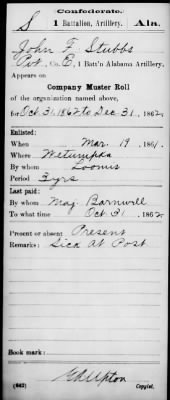 Confederate.
S 1 Battalion, Artillery. Ala.
John F Stubbs
Pvt, Co. E, 1 Batt'n Alabama Artillery.
Appears on
Company Muster Roll
of the organization named above,
for Oct 31, 1862 to Dec 31, 1862.
Enlisted:
When Mar. 19, 1861.
Where Wetumpka
By whom Loomis
Period 3 yrs
Last paid:
By whom Maj. Barnwell
To what time Oct 31, 1862.
Present or absent Present
Remarks: Sick At Post
Book mark:
(642) Upton
Copyist.